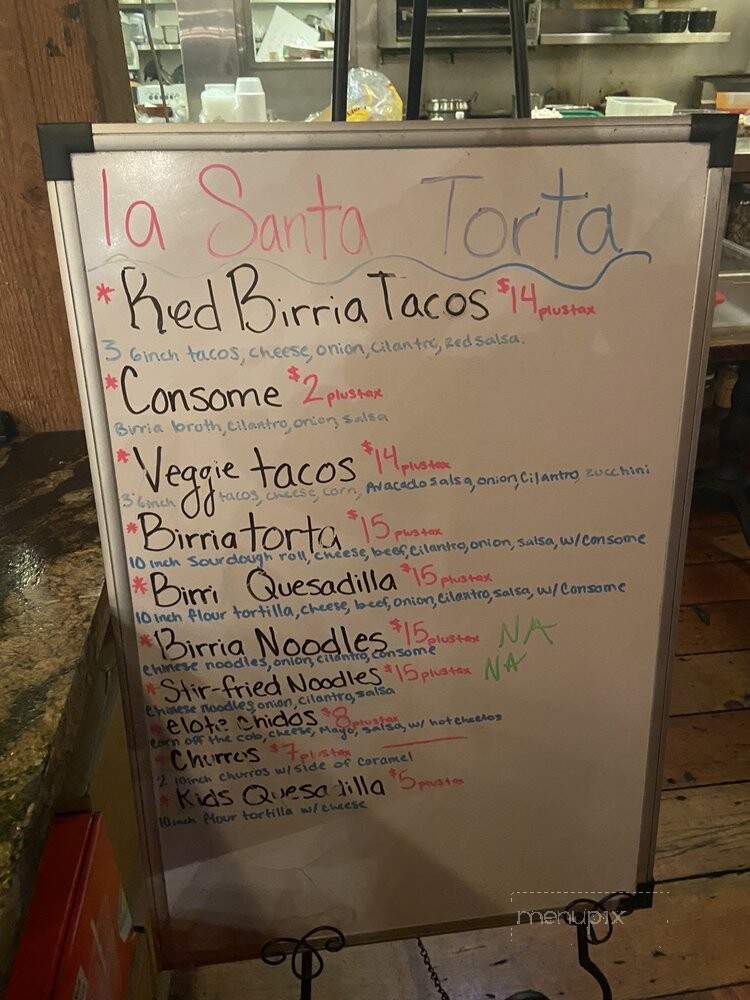 la Santa Torta
* Red Birria Tacos $14 plus tax
3 6inch tacos, cheese, onion, cilantro, Red salsa.
* Consome $2 plus tax
Birria broth, cilantro, onion, salsa
* Veggie tacos $14 plus tax
3 6inch tacos, cheese, corn, Avacado salsa, onion, cilantro, zucchini
* Birria torta $15 plus tax
10 inch sourdough roll, cheese, beef, cilantro, onion, salsa, w/ consome
* Birri Quesadilla $15 plus tax
10 inch flour tortilla, cheese, beef, onion, cilantro, salsa, w/ Consome
* Birria Noodles $15 plus tax NA
chinese noodles, onion, cilantro, consome
* Stir-fried Noodles $15 plus tax NA
chinese noodles, onion, cilantro, salsa
* elote chidos $8 plus tax
corn off the cob, cheese, Mayo, salsa, w/ hot cheetos
* Churros $7 plus tax
2 10inch churros w/ side of caramel
* Kids Quesadilla $5 plus tax
10 inch flour tortilla w/ cheese
menupix